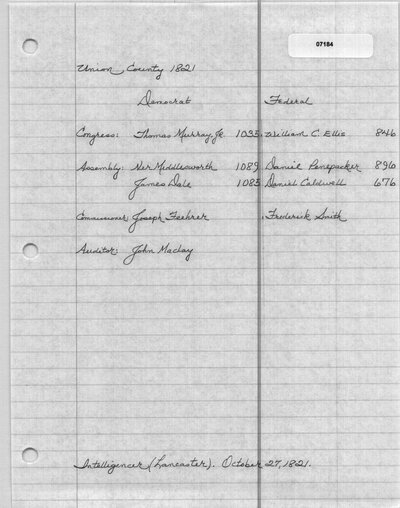 07184
Union County 1821
Democrat Federal
Congress: Thomas Murray Jr. 1035 William C. Ellis 846
Assembly: Ner Middlesworth 1089 Daniel Penepacker 896
James Dale 1085 Daniel Caldwell 676
Commissioner: Joseph Feehrer Frederick Smith
Auditor: John Maclay
Intelligencer (Lancaster). October 27, 1821.